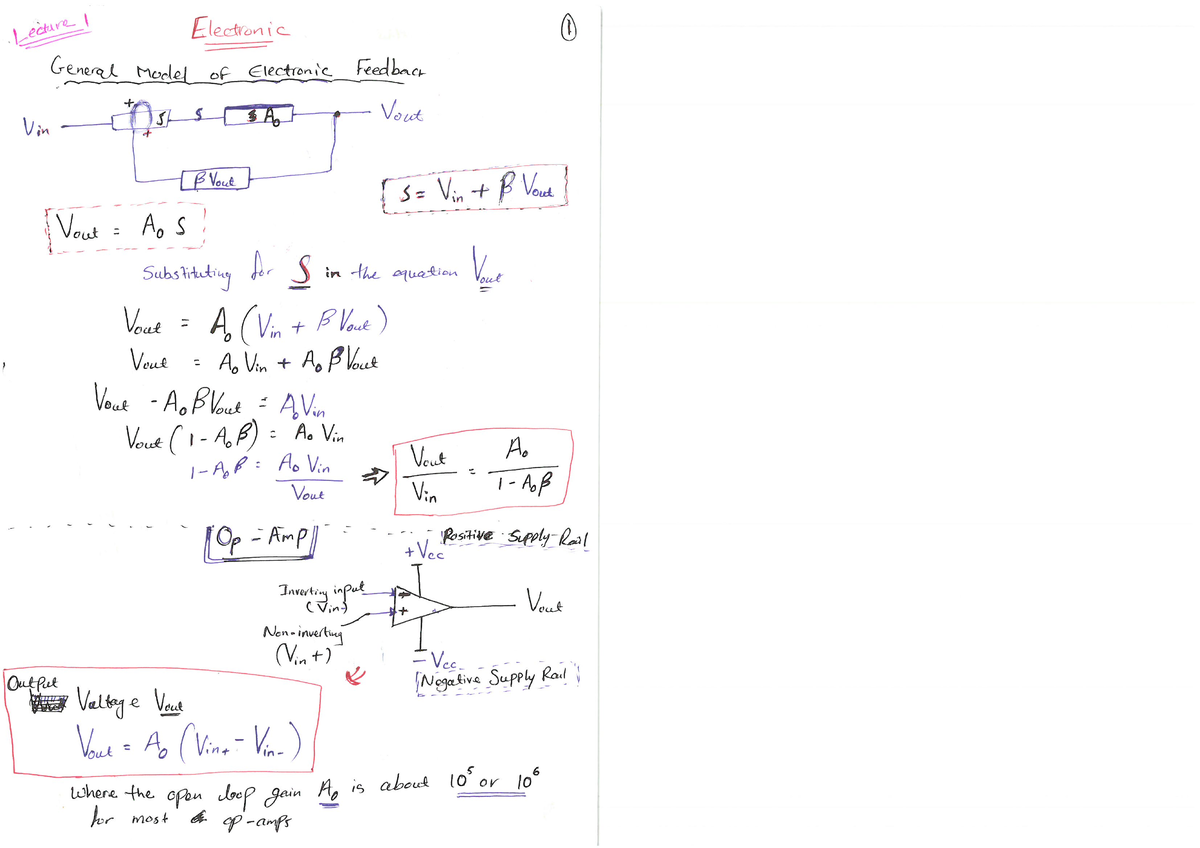 Lecture 1
Electronic
1
General Model of Electronic Feedback
+
Vin S S A₀ Vout
+
β Vout
S = Vin + β Vout
Vout = A₀ S
Substituting for S in the equation Vout
Vout = A₀ (Vin + β Vout)
Vout = A₀ Vin + A₀ β Vout
Vout - A₀ β Vout = A₀ Vin
Vout (1 - A₀ β) = A₀ Vin
1 - A₀ β = A₀ Vin / Vout ⇒ Vout / Vin = A₀ / 1 - A₀ β
Op-Amp
Positive Supply-Rail
+Vcc
Inverting input
(Vin-)
- 
+
Vout
Non-inverting
(Vin+)
- Vcc
Negative Supply Rail
Output
Voltage Vout
Vout = A₀ (Vin+ - Vin-)
Where the open loop gain A₀ is about 10⁵ or 10⁶
for most op-amps